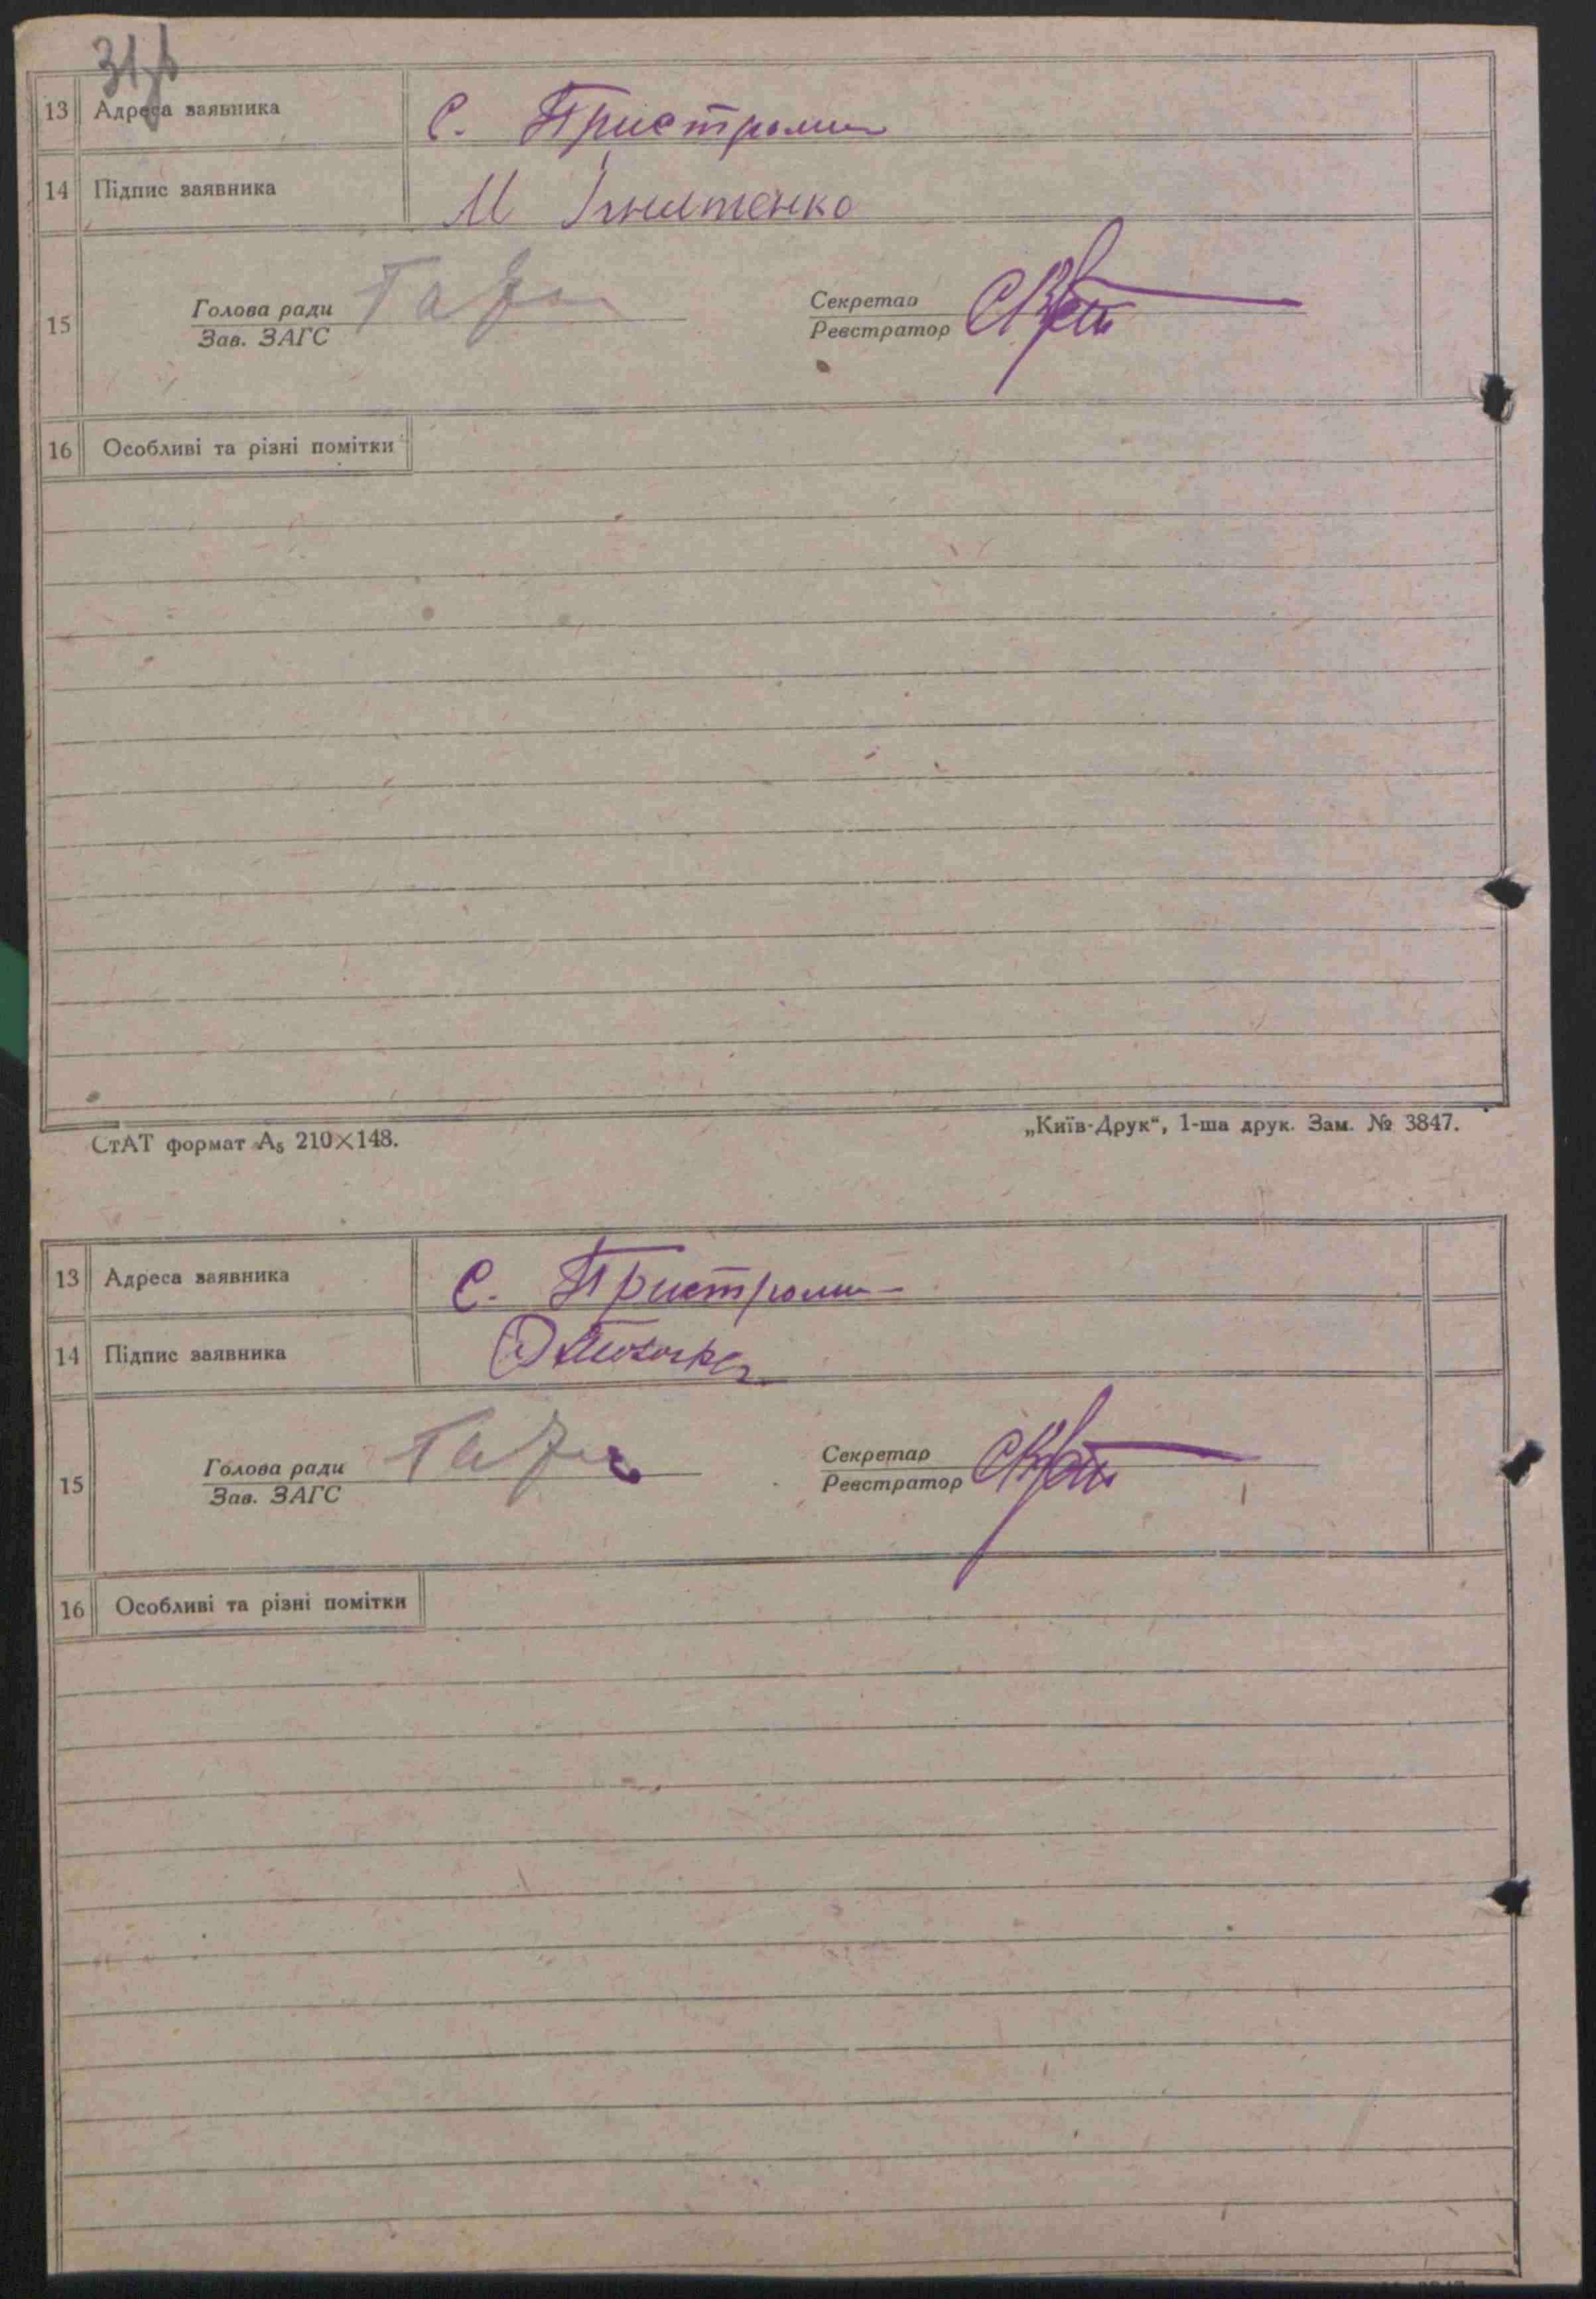 13 Адреса заявника С. Пристроми
14 Підпис заявника М Ігнатенко
15 Голова ради Секретар
Зав. ЗАГС Реєстратор
16 Особливі та різні помітки
СтАТ формат А₅ 210×148. „Київ-Друк“, 1-ша друк. Зам. № 3847.
13 Адреса заявника С. Пристроми
14 Підпис заявника
15 Голова ради Секретар
Зав. ЗАГС Реєстратор
16 Особливі та різні помітки